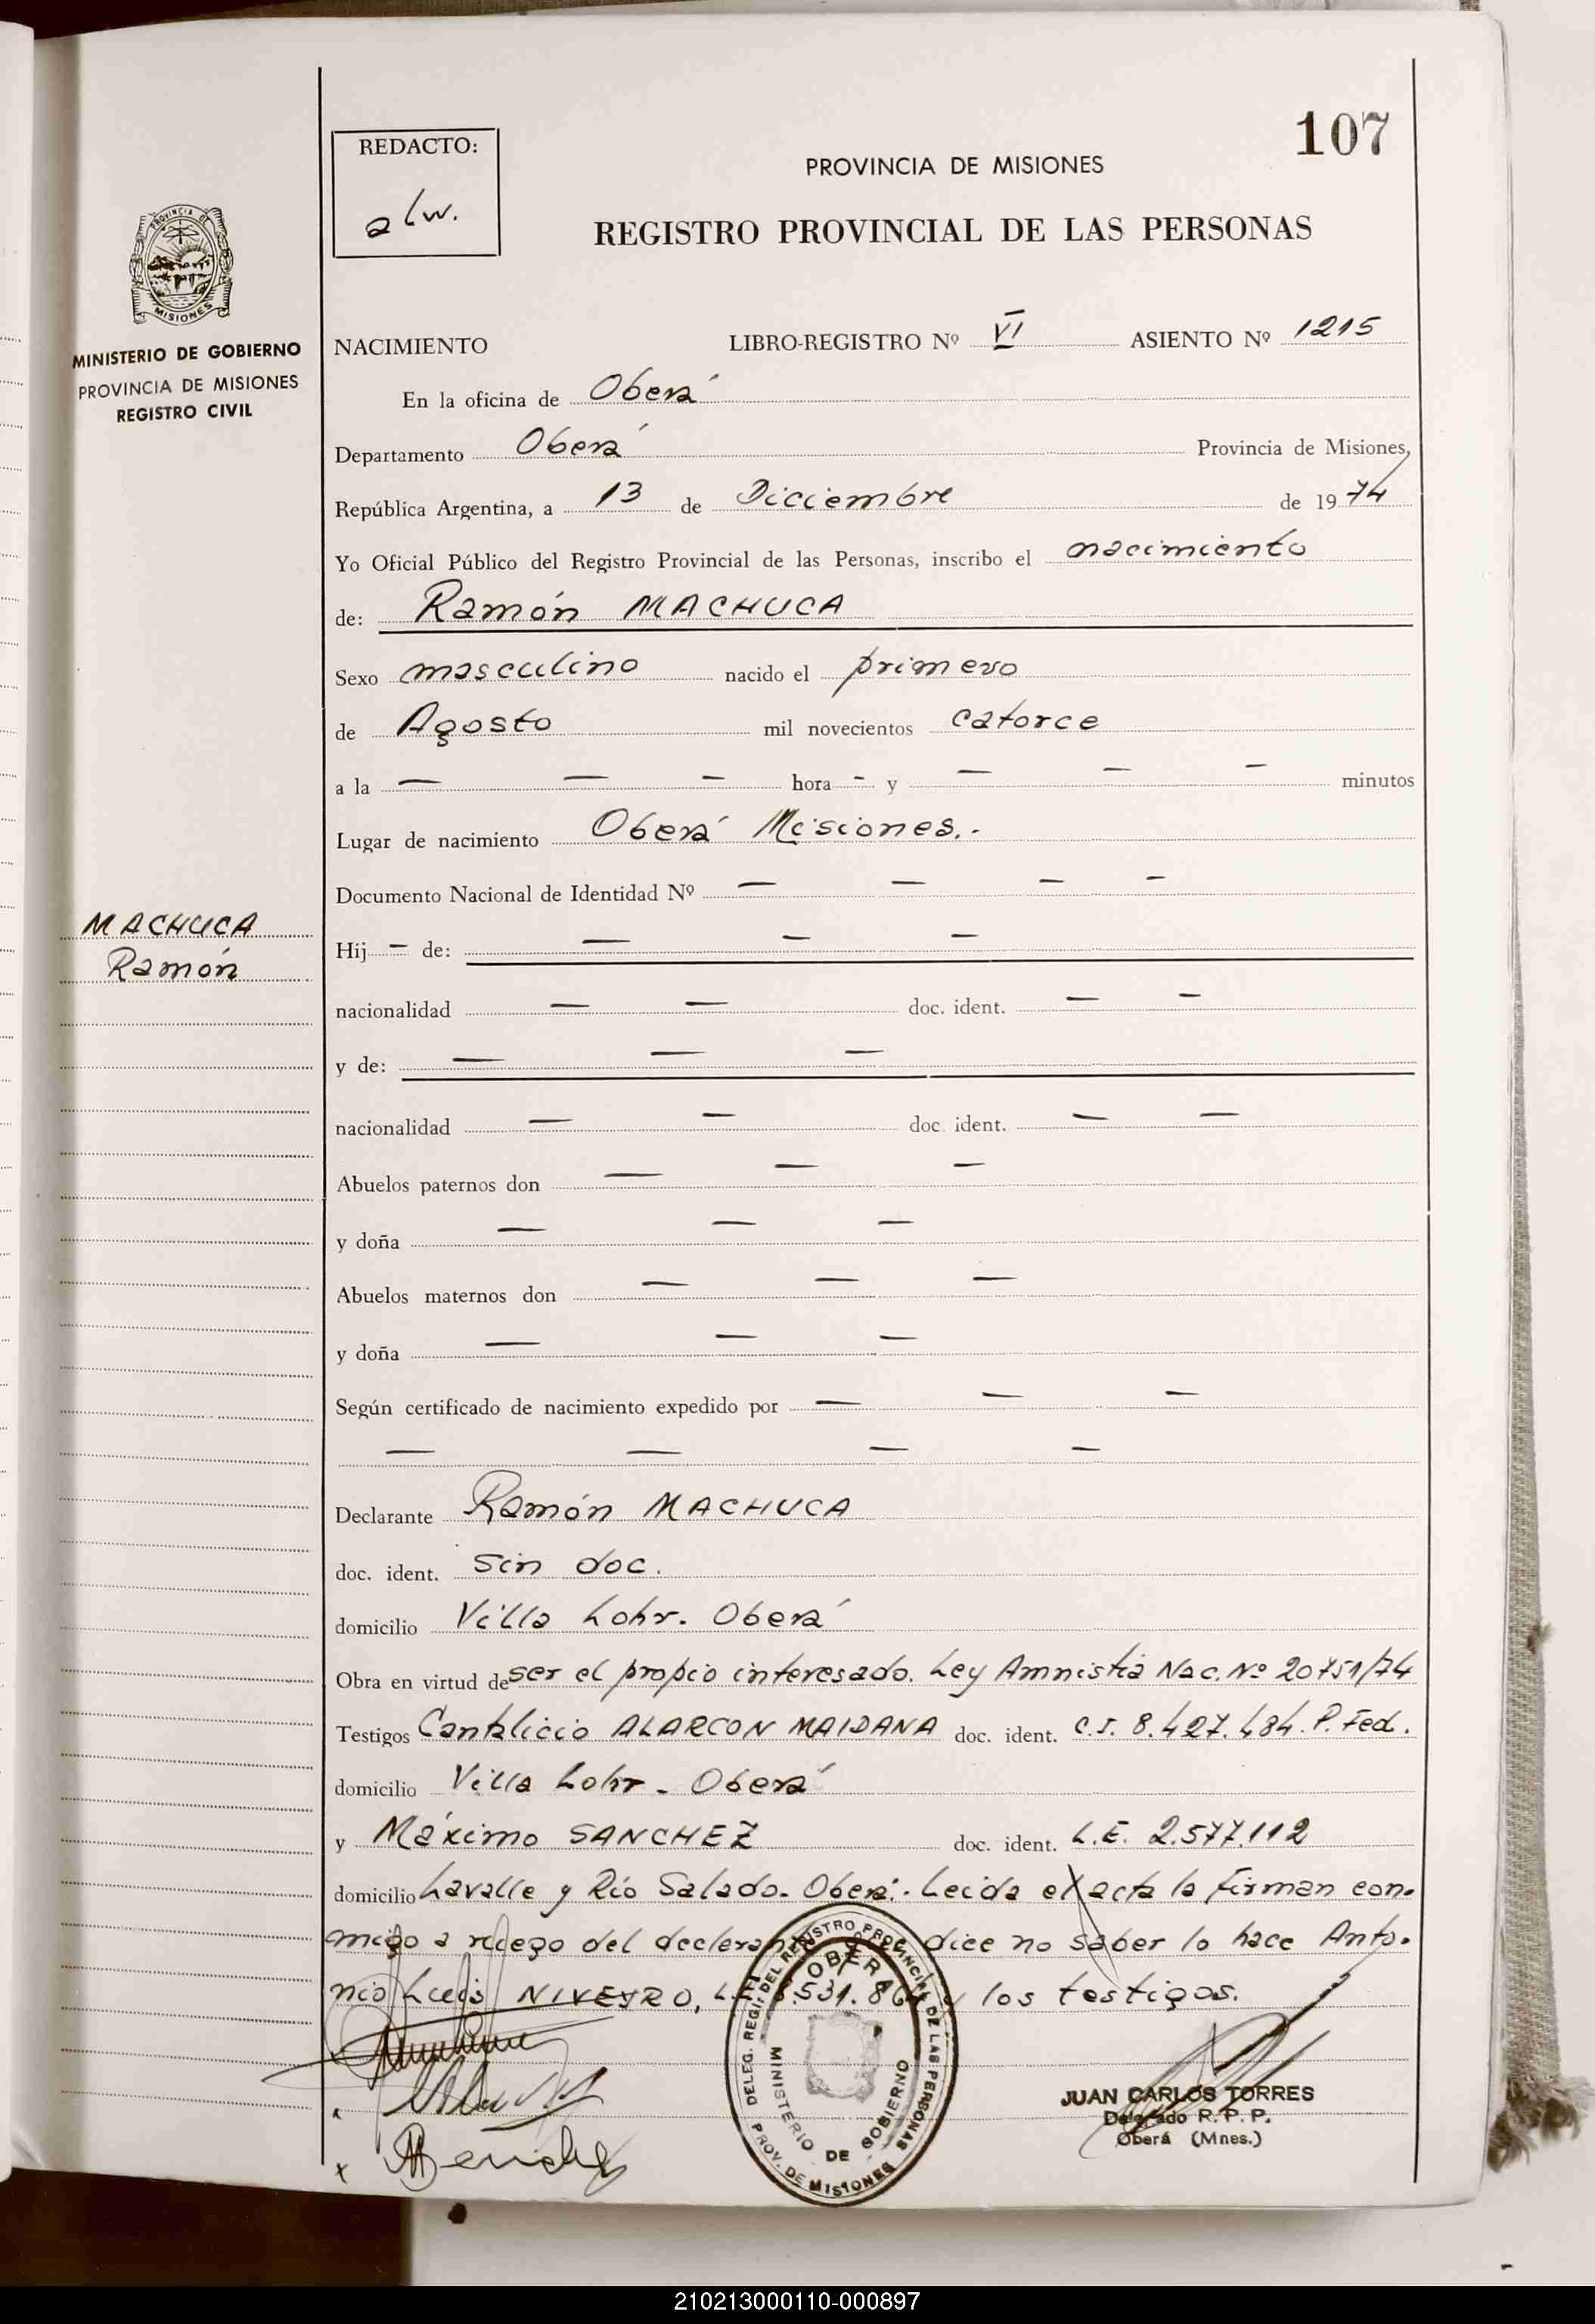 107
REDACTO:
alw.
PROVINCIA DE MISIONES
REGISTRO PROVINCIAL DE LAS PERSONAS
PROVINCIA DE
MISIONES
MINISTERIO DE GOBIERNO
PROVINCIA DE MISIONES
REGISTRO CIVIL
NACIMIENTO LIBRO-REGISTRO Nº VI ASIENTO Nº 1215
En la oficina de Oberá
Departamento Oberá Provincia de Misiones,
República Argentina, a 13 de Diciembre de 1974
Yo Oficial Público del Registro Provincial de las Personas, inscribo el nacimiento
de: Ramón MACHUCA
Sexo masculino nacido el primero
de Agosto mil novecientos catorce
a la — — — hora - y — — — minutos
Lugar de nacimiento Oberá Misiones.-
Documento Nacional de Identidad Nº — — — —
MACHUCA
Ramón
Hij — de: — — —
nacionalidad — — doc. ident. — —
y de: — — —
nacionalidad — — doc. ident. — —
Abuelos paternos don — — —
y doña — — —
Abuelos maternos don — — —
y doña — — —
Según certificado de nacimiento expedido por — — —
— — — —
Declarante Ramón MACHUCA
doc. ident. sin doc.
domicilio Villa Lohr. Oberá
Obra en virtud de ser el propio interesado. Ley Amnistia Nac. Nº 20751/74
Testigos Cantalicio ALARCON MAIDANA doc. ident. C.I. 8.427.484. P. Fed.
domicilio Villa Lohr - Oberá
y Máximo SANCHEZ doc. ident. L.E. 2.577.112
domicilio Lavalle y Río Salado. Oberá.- Leida el acta la firman con-
migo a ruego del dice no saber lo hace Anto-
nio Luis NIVEYRO, los testigos.
DELEG. REGI. DEL REGISTRO PROVINCIAL DE LAS PERSONAS
OBERA
MINISTERIO DE GOBIERNO
PROV. DE MISIONES
JUAN CARLOS TORRES
Delegado R. P. P.
Oberá (Mnes.)
210213000110-000897